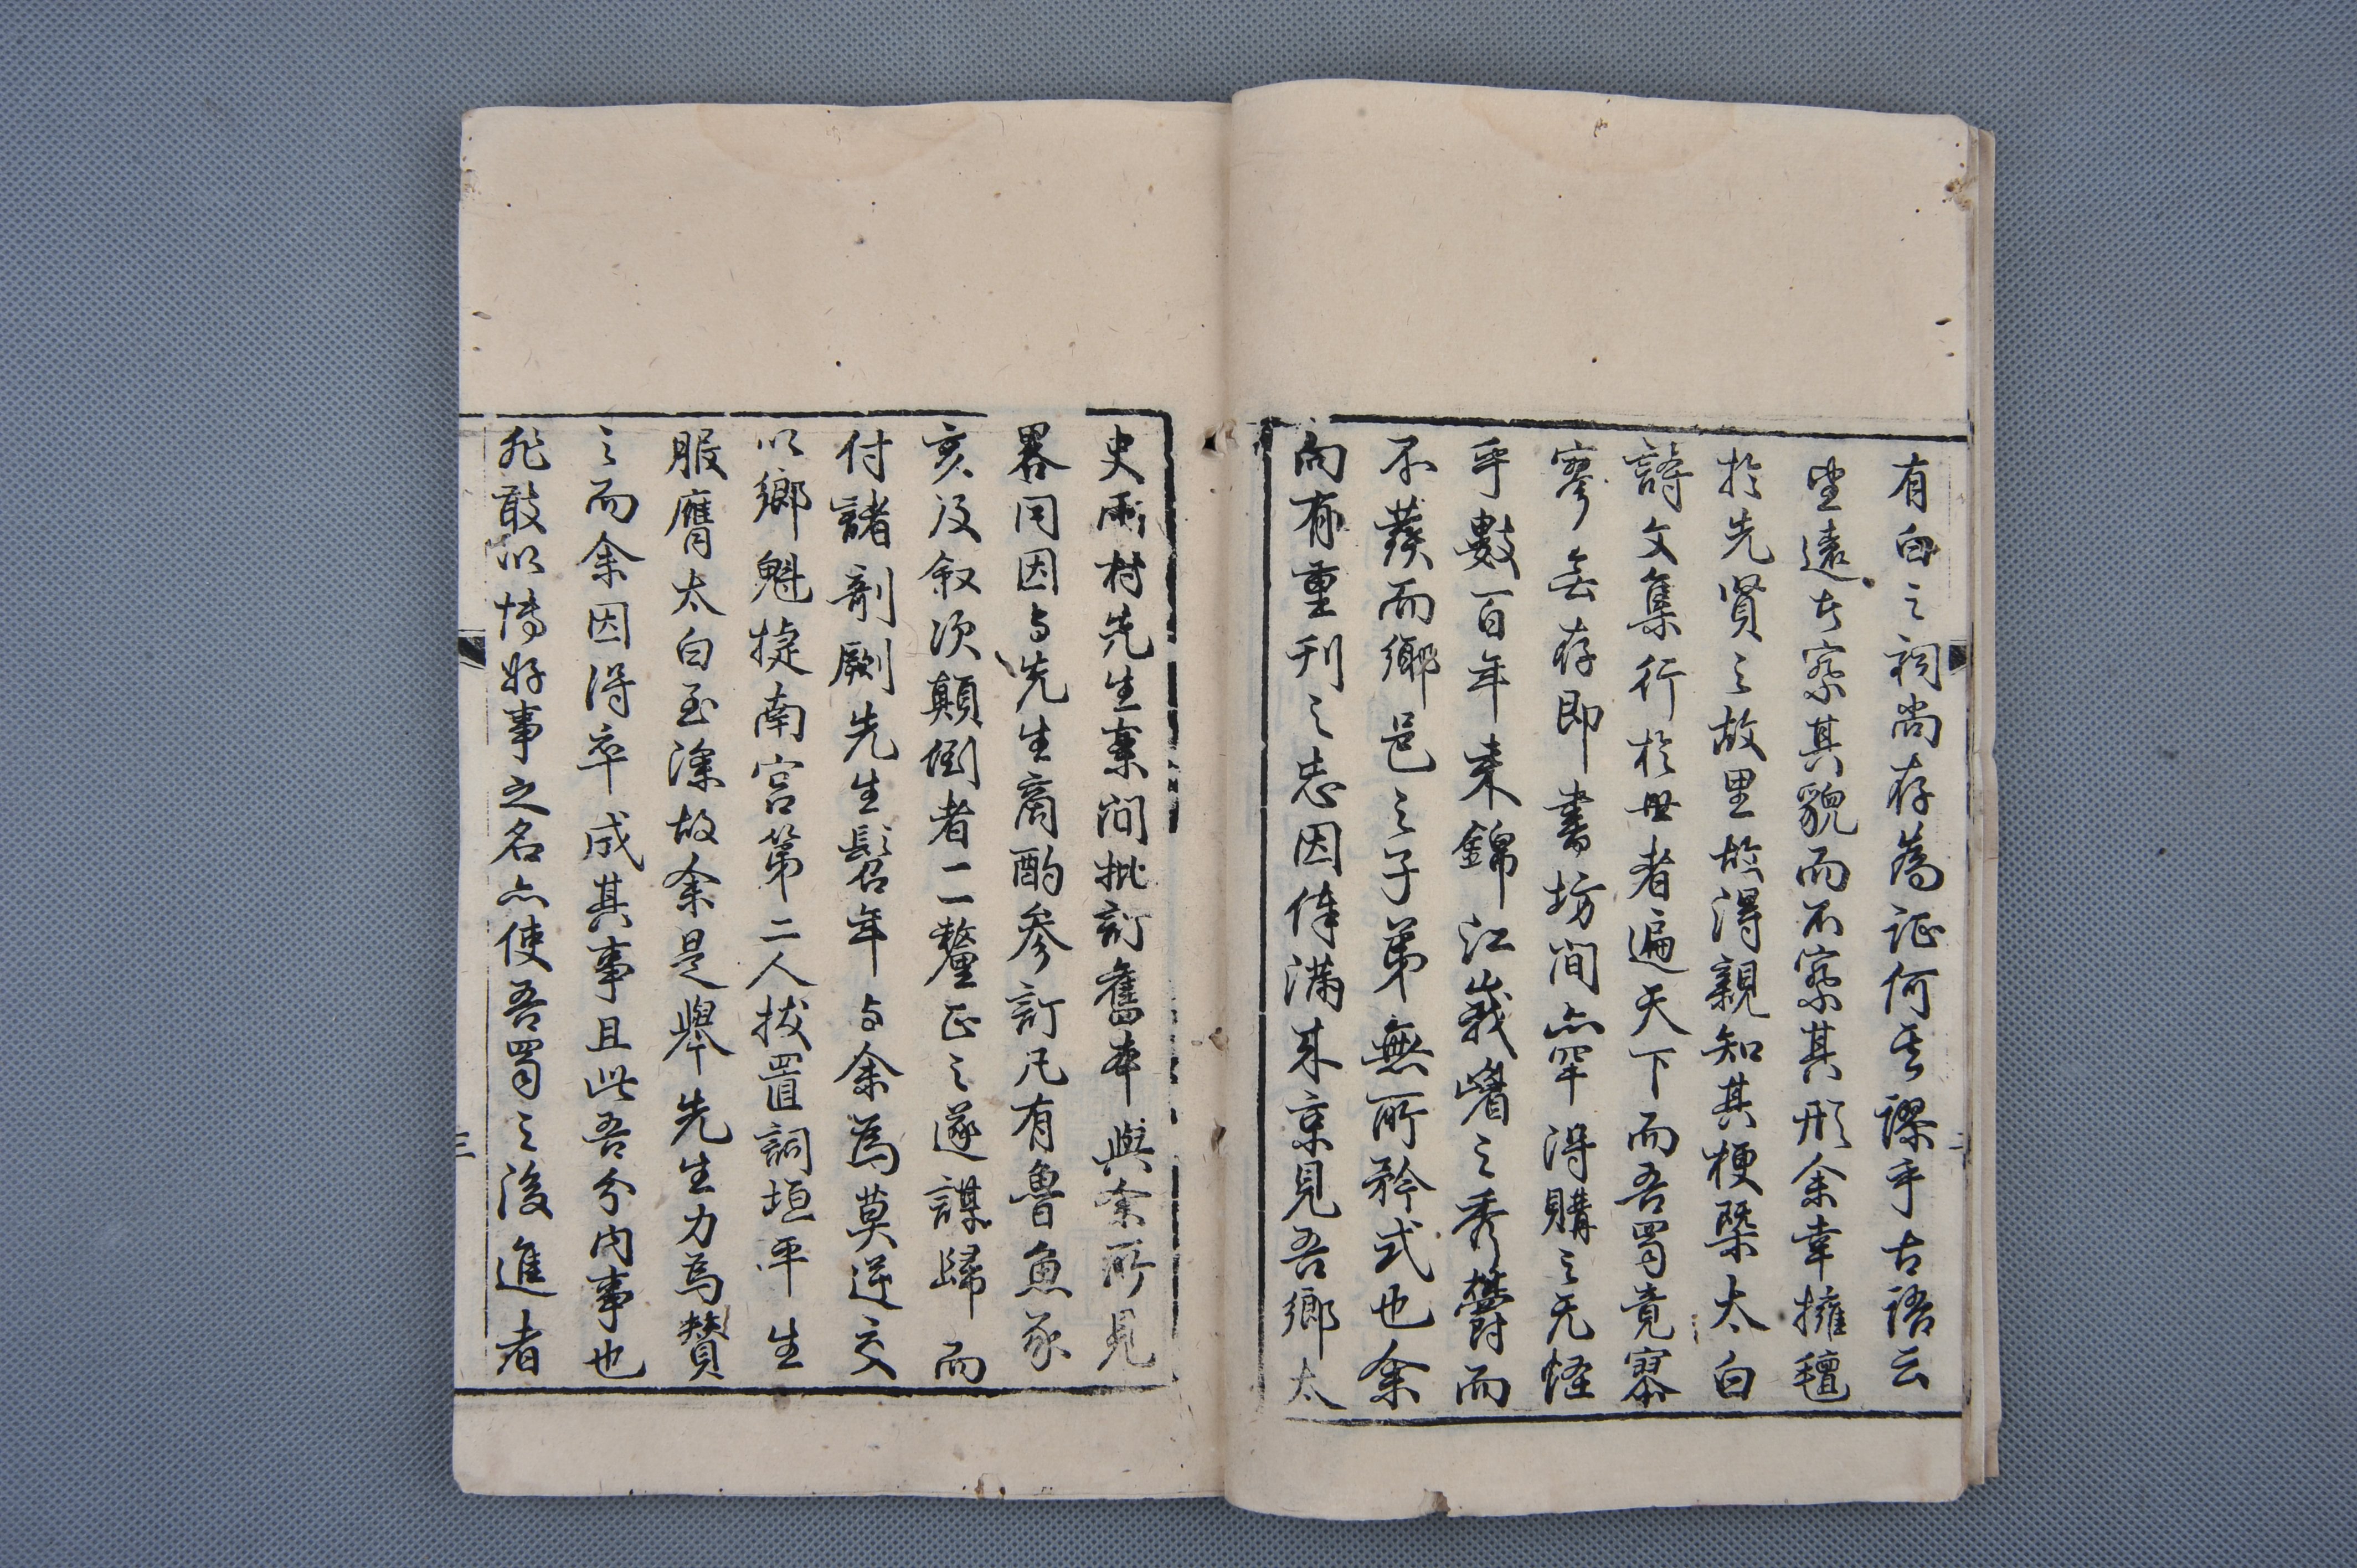 有白之祠尚存為证何其謬乎古語云
坐遠者察其貌而不察其形余幸擁氊
於先賢之故里故得親知其梗槩太白
詩文集行於世者遍天下而吾蜀竟寥
寥無存即書坊间亦罕得購之无怪
乎數百年来錦江峩嶲之秀欝而
不發而鄉邑之子弟無所矜式也余
向有重刊之志因俸滿来京見吾鄉太
史雨村先生案间批訂舊本與余所見
畧同因与先生商酌參訂凡有魯魚豕
亥及叙次顛倒者一一釐正之遂謀歸而
付諸剞劂先生髫年与余為莫逆交
以鄉魁捷南宮第二人拔置詞垣平生
服膺太白至深故余是舉先生力為賛
之而余因得卒成其事且此吾分内事也
非敢以博好事之名亦使吾蜀之後進者
二
三